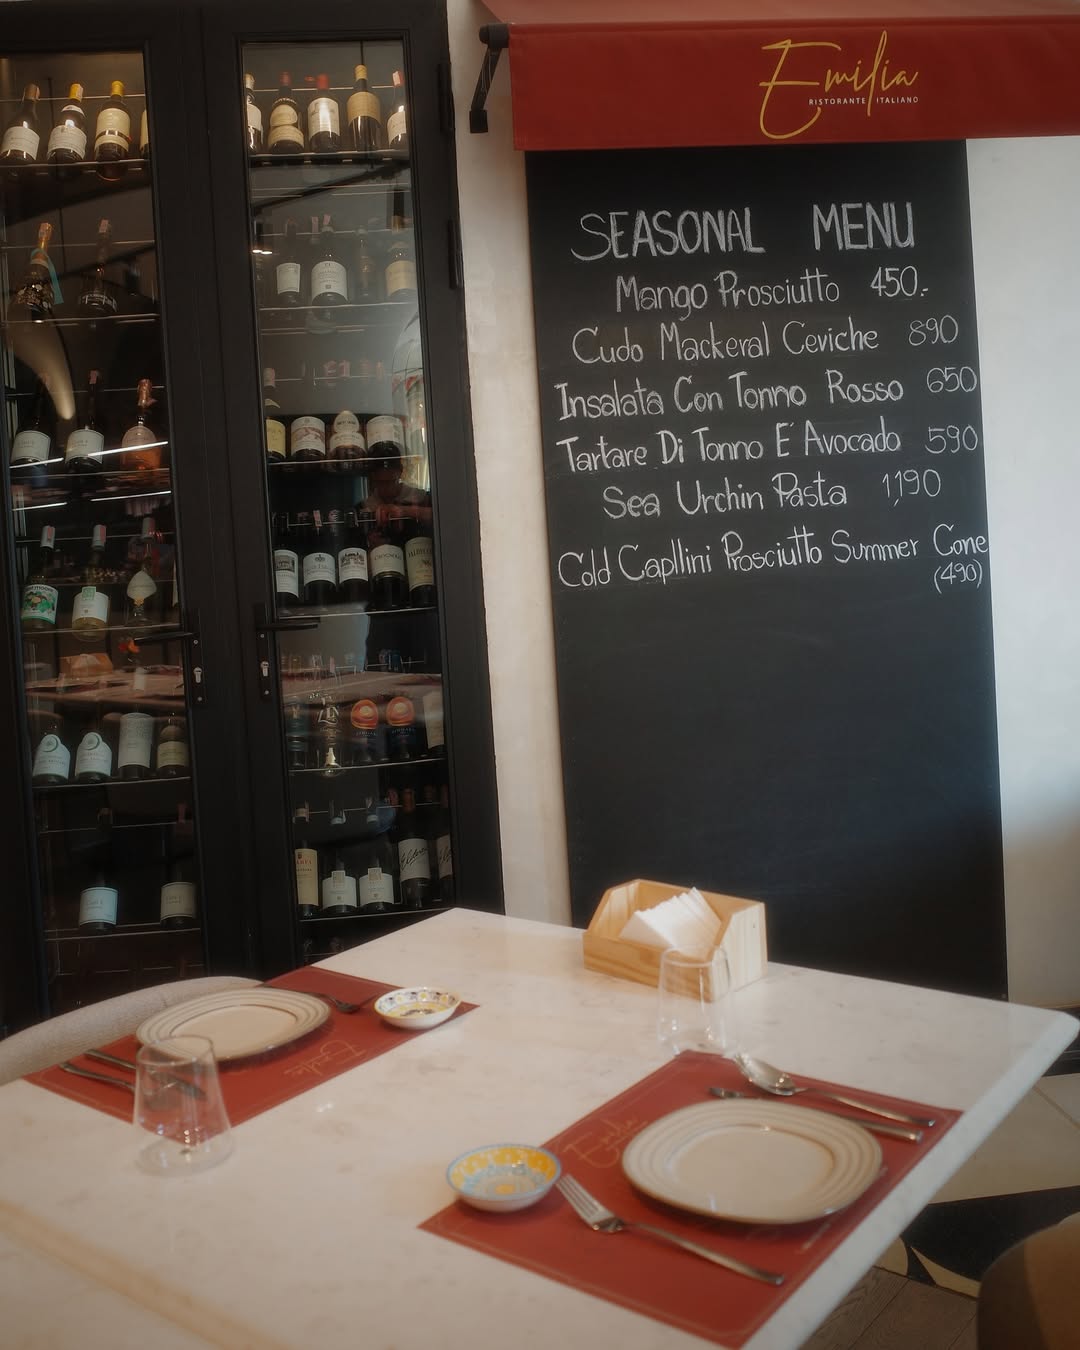 Emilia
RISTORANTE ITALIANO
SEASONAL MENU
Mango Prosciutto 450.-
Cudo Mackeral Ceviche 890
Insalata Con Tonno Rosso 650
Tartare Di Tonno E' Avocado 590
Sea Urchin Pasta 1,190
Cold Capllini Prosciutto Summer Cone
(490)
Emilia
Emilia